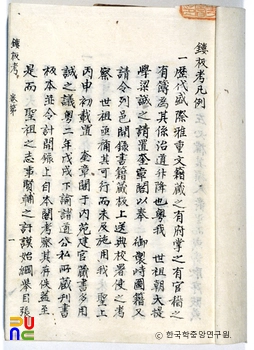 鏤板考凡例
一歷代盛際雅重文籍藏之有府掌之有官稽之
有簿爲其係治道升降也粤我 世祖朝大提
學梁誠之請置奎章閣以奉 御製時圖籍又
請令列邑開錄書籍藏板上送典校署使之考
察 世祖亟稱其可行而未及施用我 聖上
丙申初載置 奎章閣于內苑建官藏書多用
誠之議粤二年戊戌下諭諸道公私所藏刊書
板本並令計開錄上自本閣考察其存佚蓋至
是而 聖祖之志事賢輔之訏謨始綱擧目張
鏤板考 卷第 一
ⓒ 한국학중앙연구원.